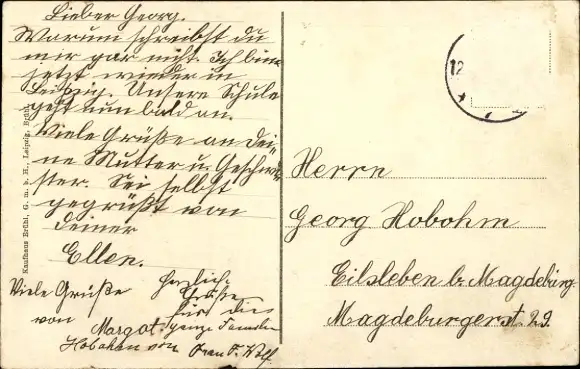 Lieber Georg.
Warum schreibst du
mir gar nicht. Ich bin
jetzt wieder in
Leipzig. Unsere Schule
geht nun bald an.
Viele Grüße an dei-
ne Mutter u. Geschwi-
ster. Sei selbst
gegrüßt von
deiner
Ellen.
Viele Grüße
von Margot.
Herzlich.
Grüße
für die
ganze Familie
Hobohm von Frau F. Wolf
Kaufhaus Brühl, G. m. b. H., Leipzig, Brühl
12
Herrn
Georg Hobohm
Eilsleben b. Magdeburg
Magdeburgerst. 29.